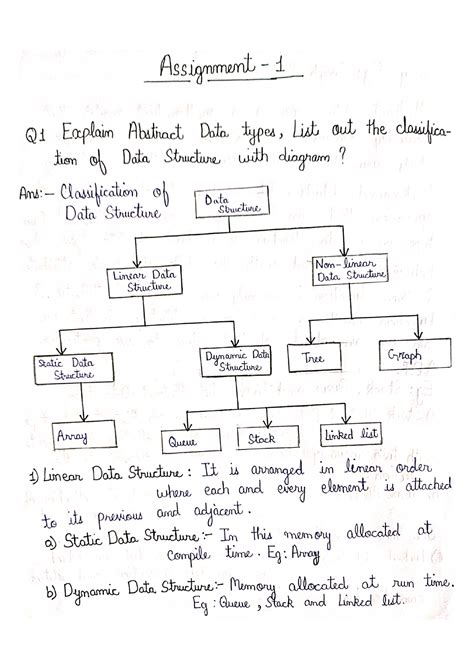 Assignment - 1
Q1 Explain Abstract Data types, List out the classifica-
tion of Data Structure with diagram ?
Ans:- Classification of
Data Structure
Data
Structure
Linear Data
Structure
Non-linear
Data Structure
Static Data
Structure
Dynamic Data
Structure
Tree
Graph
Array
Queue
Stack
Linked list
1) Linear Data Structure : It is arranged in linear order
where each and every element is attached
to its previous and adjacent.
a) Static Data Structure:- In this memory allocated at
compile time. Eg: Array
b) Dynamic Data Structure:- Memory allocated at run time.
Eg : Queue , Stack and Linked list.